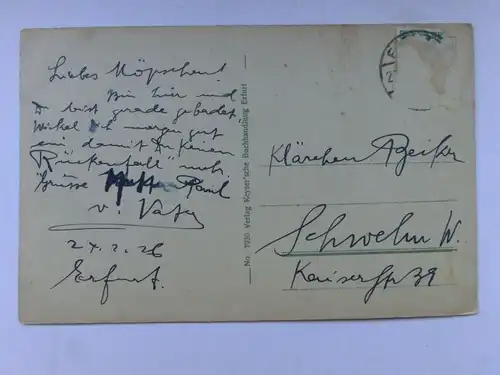 Liebes Möpschen!
Bin hier und
Du wirst gerade gebadet.
Wickel Dich morgen gut
ein damit Du keinen
"Rückenfall"
Grüsse Paul
v. Vater
Erfurt.
No. 1930 Verlag Keyser'sche Buchhandlung Erfurt
Klärchen Becker
Schwelm W.
Kaiserstr 39